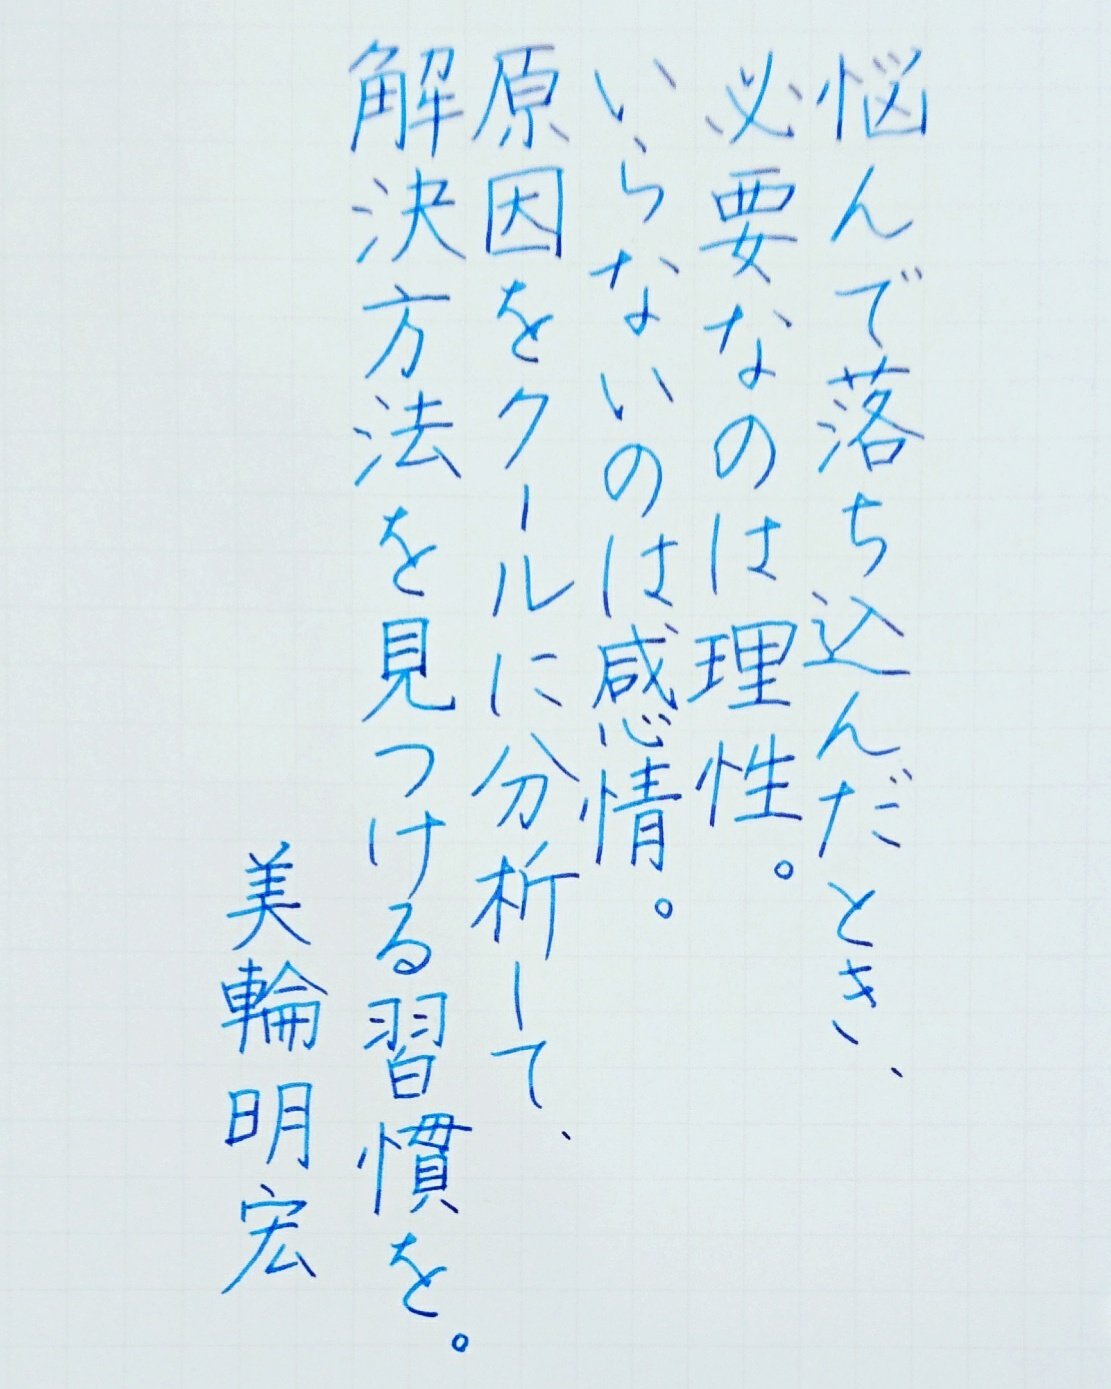 悩んで落ち込んだとき、
必要なのは理性。
いらないのは感情。
原因をクールに分析して、
解決方法を見つける習慣を。
美輪明宏